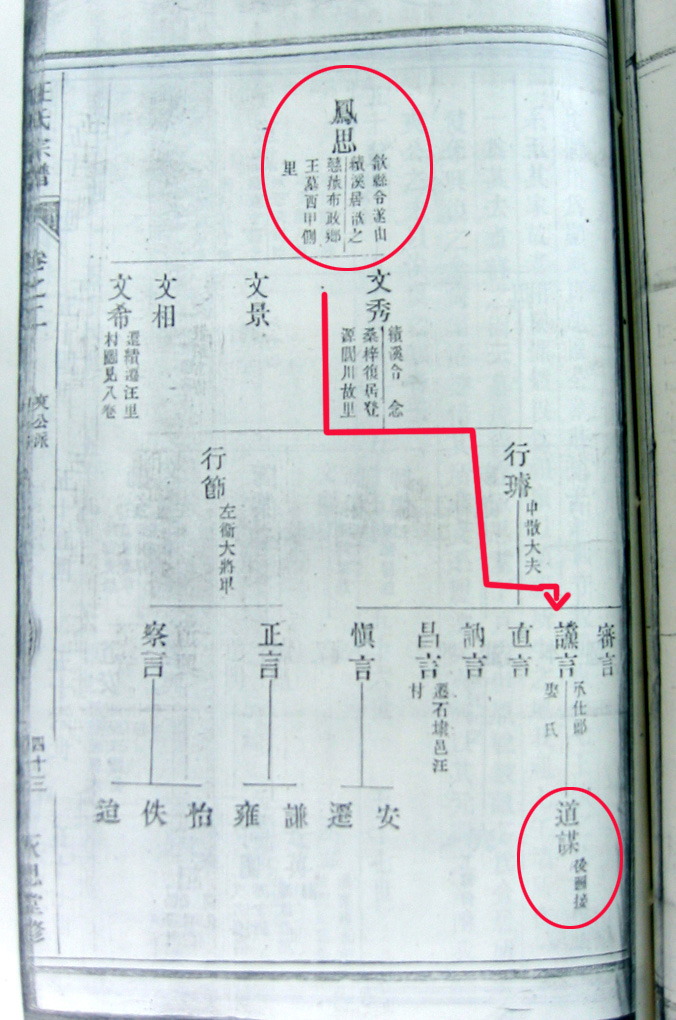 汪氏宗譜
卷之二
爽公派
四十三
鳳思
歙縣令遂由
績溪居歙之
慈孤布政鄉
王墓西甲側
里
文秀
績溪令 念
桑梓復居登
源闕川故里
文景
文相
文希
遷績遷汪里
村圖見八卷
行璿
中散大夫
行節
左衛大將軍
審言
讜言
承仕郎
娶 氏
直言
訥言
昌言
遷石埭邑汪
村
慎言
正言
察言
道謀
後面接
安
遷
謙
雍
怡
佚
迨